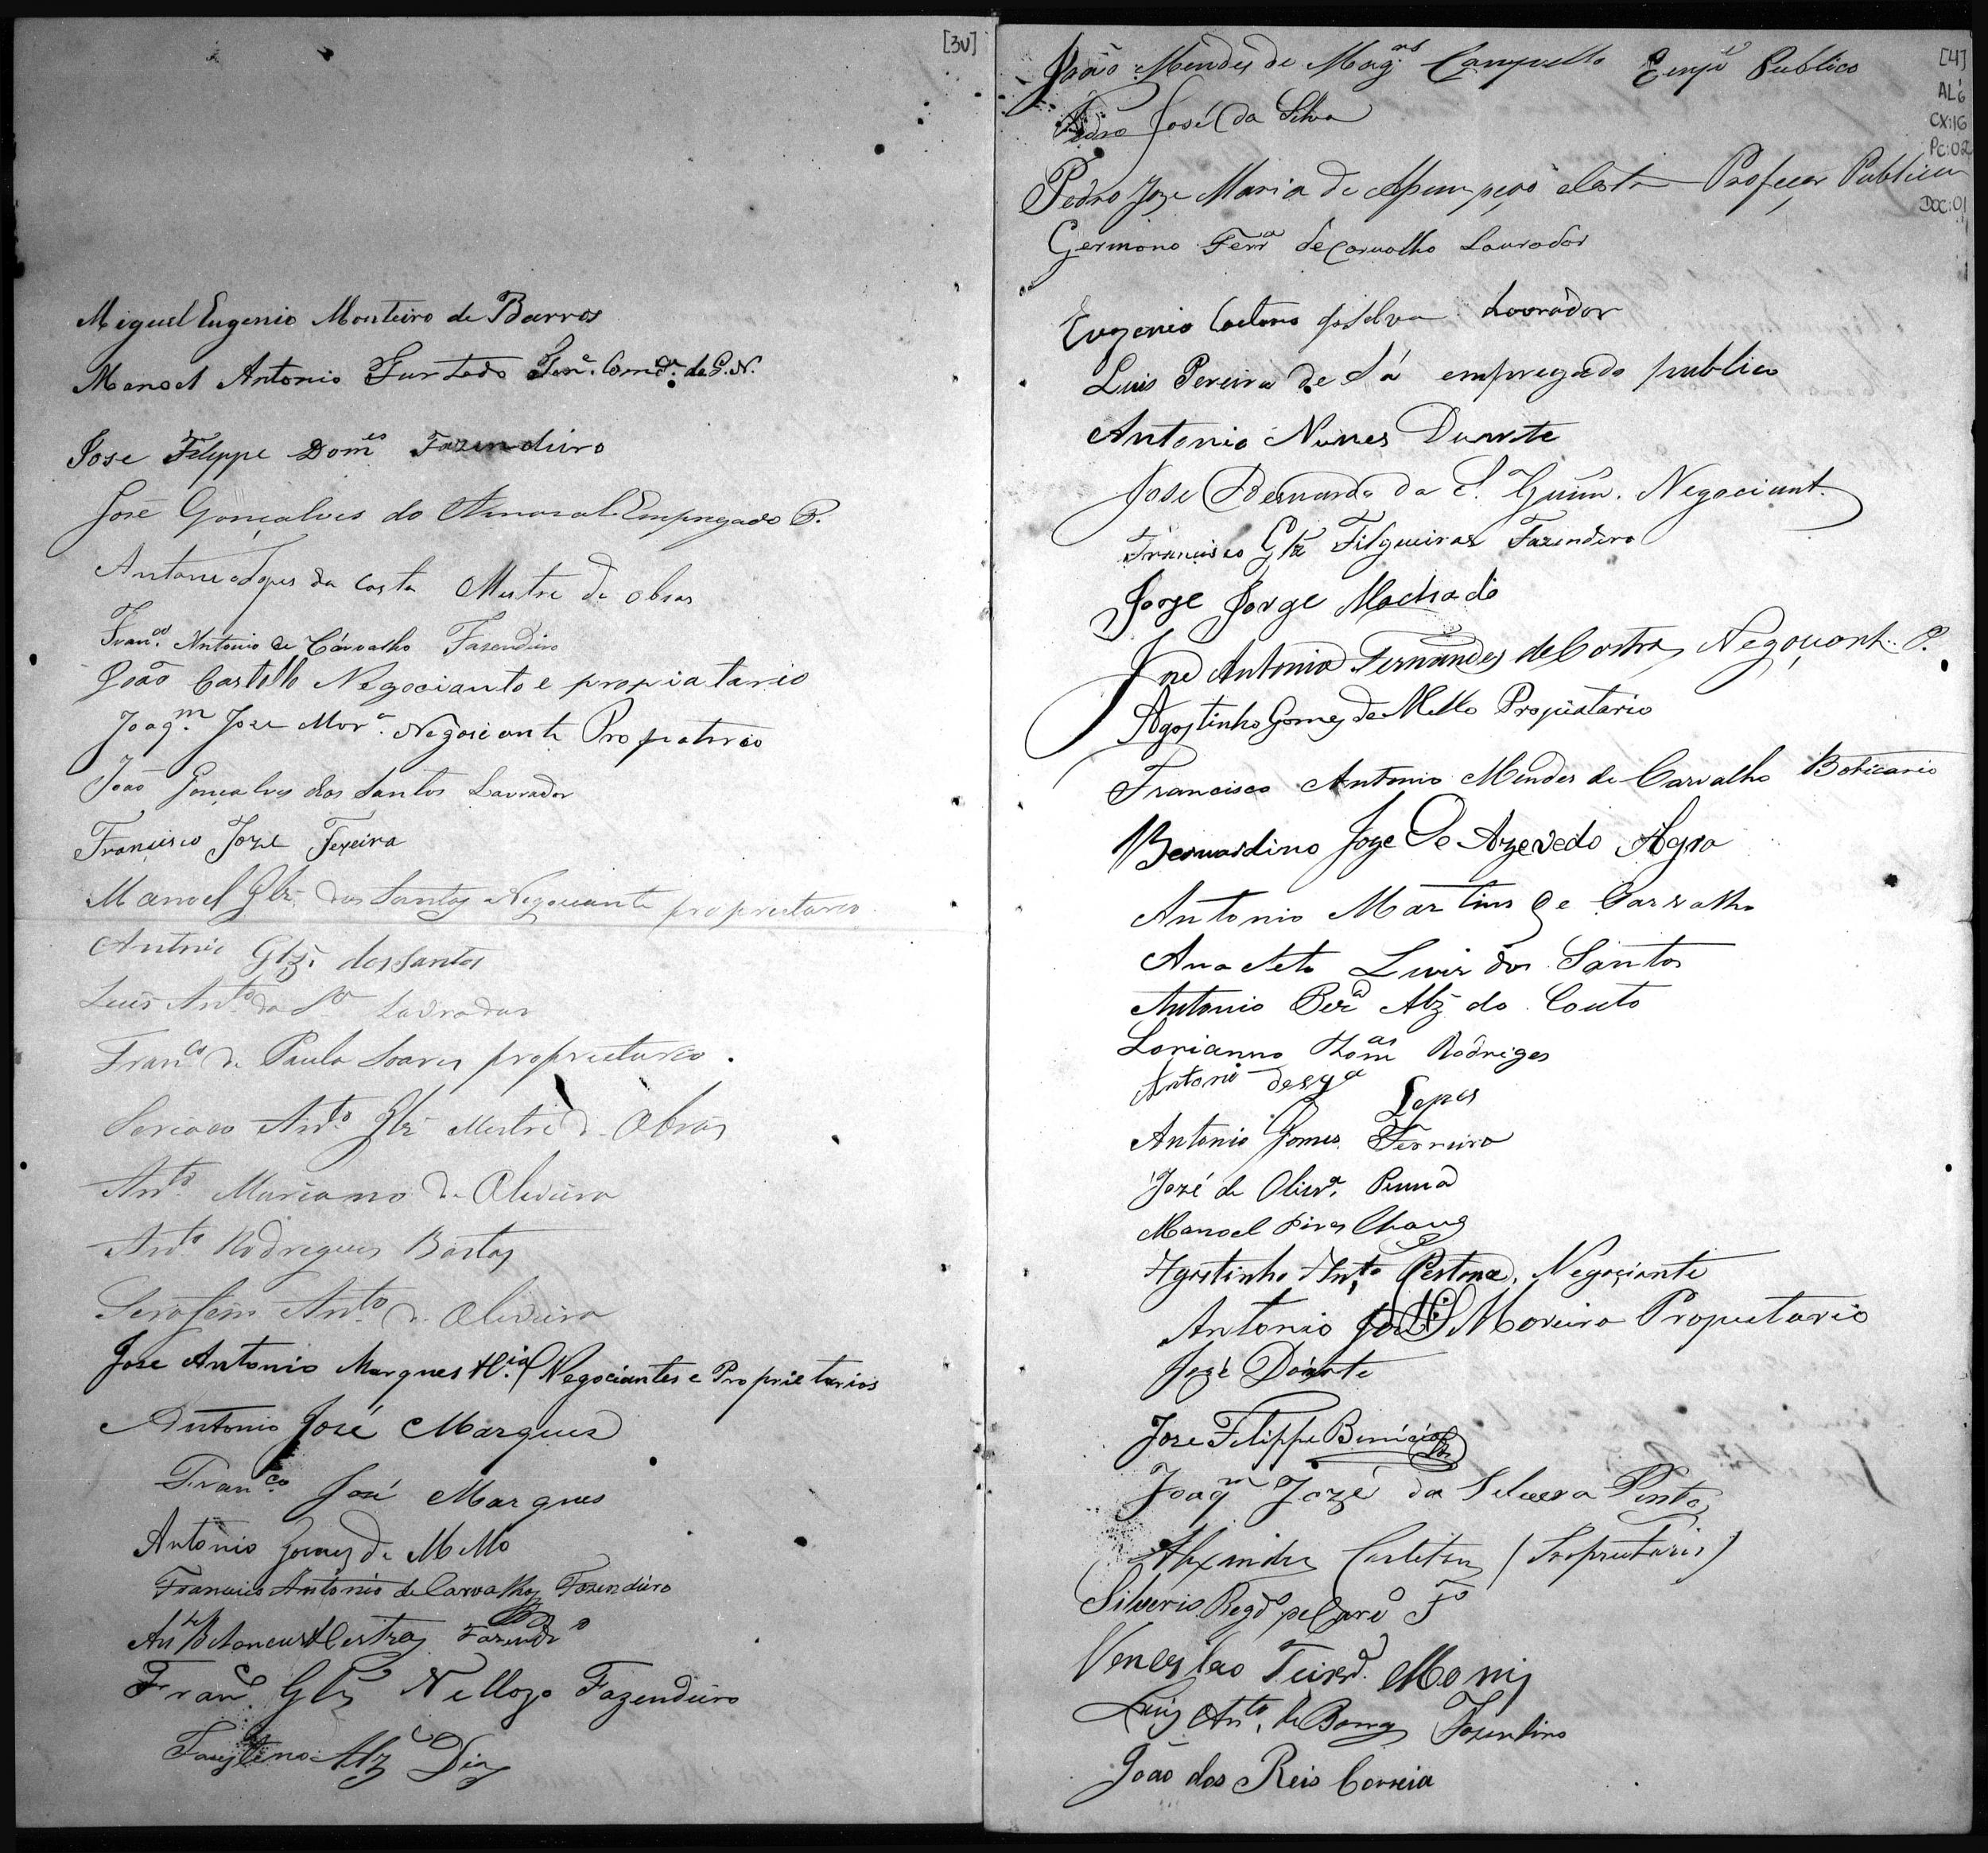 [3v]
Miguel Eugenio Monteiro de Barros
Manoel Antonio Furtado Ten.e Com.de da G. N.
Jose Felippe Dom.es Fazendeiro
José Gonçalves do Amaral Empregado P.
Antonio Lopes da Costa Mestre de obras
Fran.co Antonio de Carvalho Fasendeiro
João Castello Negociante e propiatario
Joaq.m Joze Mor.a Negociante Propatario
João Gonçalves dos Santos Lavrador
Francisco Joze Texeira
Manoel Glz dos Santos Negociante proprietario
Antonio Glz. dos Santos
Luis Ant.o da S.a Lavrador
Fran.co de Paula Soares proprietario.
Ant.o Glz Mestre d Obras
Ant.o Mariano de Oliveira
Ant.o Rodrigues Bastos
Serafim Ant.o de Oliveira
Jose Antonio Marques & C.ia Negociantes e Proprietarios
Antonio José Marques
Fran.co José Marques
Antonio Gomes de Mello
Francisco Antonio de Carvalho Fazendeiro
An.to Betancurt Fazendr.o
Fran.co Glz Vellozo Fazendeiro
Faustino Alz Dias
[4]
AL6
CX:16
PC:02
DOC:01
João Mendes de Mag.es Campello Emp.o Publico
Pedro José da Silva
Pedro Joze Maria de Costa Profeçor Publico
Germano Ferr.a de Carvalho Lavrador
Eugenio Caetano da Silva Lavrador
Luis Pereira de Sá empregado publico
Antonio Nunes Duarte
Jose Bernardo da S. Guim. Negociant.
Francisco Glz Filgueiras Fazendero
Jorge Machado
Jne Antonio Fernandes de Castro Negociant. P.
Agostinho Gomes de Mello Propietario
Francisco Antonio Mendes de Carvalho Boticario
Bernardino Joze de Azevedo Agra
Antonio Martins de Carvalho
Anacleto Luiz dos Santos
Antonio Per.a Alz do Couto
Rodriges
Antonio
Lopes
Antonio Gomes Ferreira
José de Oliv.a Penna
Manoel Pires Chaves
Agostinho Ant.o Pestana, Negociante
Antonio José Moreira Propietario
José Doarte
Jose Felippe Benicio
Joaq.m Joze da Silveira Pinto
Alexandre (Proprietario)
Silverio
Venceslao Teixr.a Monis
Luis Ant.o de Barros Fazendero
João dos Reis Correia